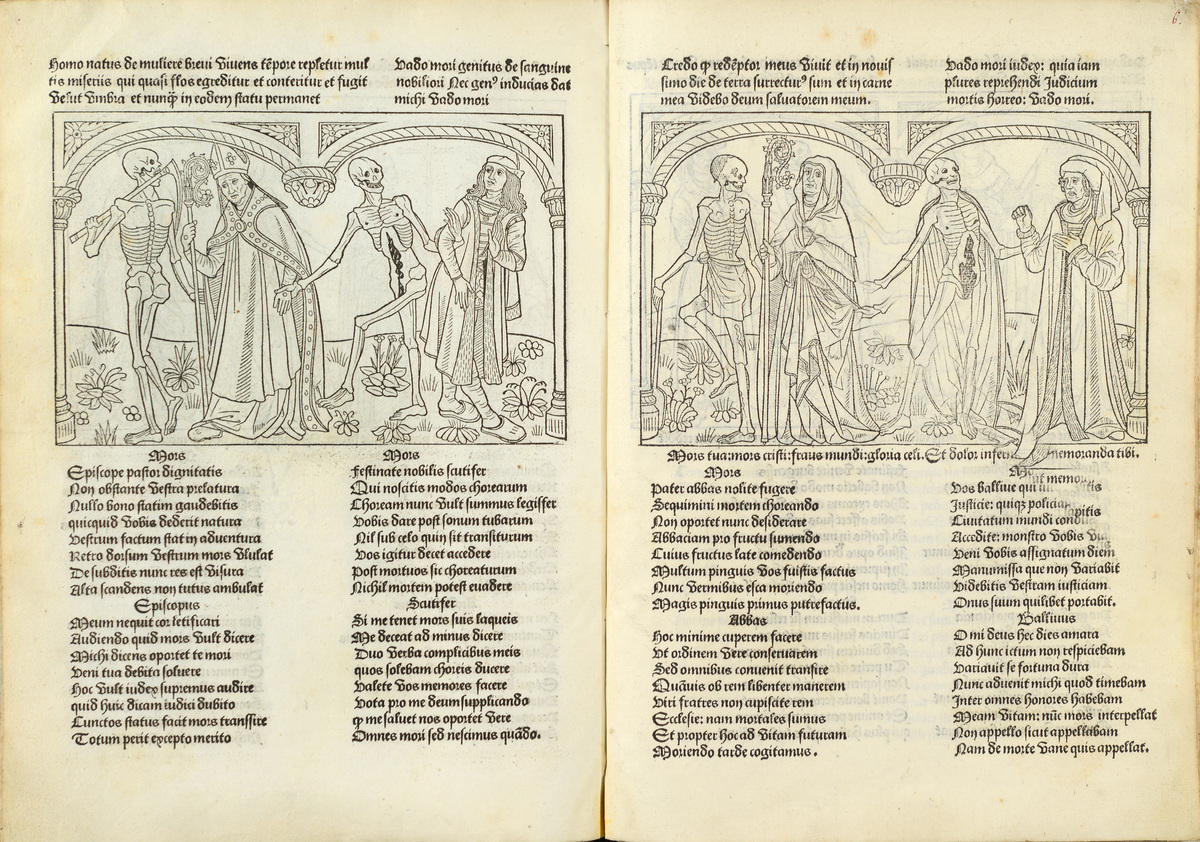 Homo natus de muliere brevi vivens tēpore repletur mul
tis miseriis qui quasi flos egreditur et conteritur et fugit
velut vmbra et nunq̄ in eodem statu permanet
Vado mori genitus de sanguine
nobiliori Nec genꝰ inducias dat
michi vado mori
Mors
Episcope pastor dignitatis
Non obstante vestra prelatura
Nullo bono statim gaudebitis
quicquid vobis dederit natura
Vestrum factum stat in adventura
Retro dorsum vestrum mors vlulat
De subditis nunc res est visura
Alta scandens non tutus ambulat
Episcopus
Meum nequit cor letificari
Audiendo quid mors vult dicere
Michi dicens oportet te mori
Veni tua debita solvere
Hoc vult iudex supremus audire
quid huic dicam iudici dubito
Cunctos status facit mors transsire
Totum perit excepto merito
Mors
Festinate nobilis scutifer
Qui noscitis modos chorearum
Choream nunc vult summus legiffer
Vobis dare post sonum tubarum
Nil sub celo quin sit transiturum
Vos igitur decet accedere
Post mortuos sic choreaturum
Nichil mortem potest euadere
Scutifer
Si me tenet mors suis laqueis
Me deceat ad minus dicere
Duo verba complicibus meis
quos solebam choreis ducere
Valete vos memores facere
Vota pro me deum supplicando
qꝫ me saluet nos oportet vere
Omnes mori sed nescimus quādo.
6.
Credo qꝫ redēptor meus viuit et in nouis
simo die de terra surrecturꝰ sum et in carne
mea videbo deum saluatorem meum.
Vado mori iudex: quia iam
plures reprehendi Judicium
mortis horreo: vado mori.
Mors tua: mors cristi: fraus mundi: gloria celi. Et dolor memoranda tibi.
Mors
Pater abbas nolite fugere
Sequimini mortem choreando
Non oportet nunc desiderare
Abbaciam pro fructu sumendo
Cuius fructus late comedendo
Multum pinguis vos fuistis factus
Nunc vermibus esca moriendo
Magis pinguis primus putrefactus.
Abbas
Hoc minime cuperem facere
Vt ordinem vere conseruarem
Sed omnibus conuenit transire
Quāuis ob rem libenter manerem
Viri fratres non cupiscite rem
Ecclesie: nam mortales sumus
Et propter hoc ad vitam futuram
Moriendo tarde cogitamus.
Vos balliue qui
Justicie: quiqꝫ
Ciuitatum mundi
Accedite: monstro vobis
Veni vobis assignatum diem
Manumissa que non variabit
Videbitis vestram iusticiam
Onus suum quilibet portabit.
Balliuus
O mi deus hec dies amara
Ad hunc ictum non respiciebam
Variauit se fortuna dura
Nunc aduenit michi quod timebam
Inter omnes honores habebam
Meam vitam: nūc mors interpellat
Non appello sicut appellebam
Nam de morte vane quis appellat.